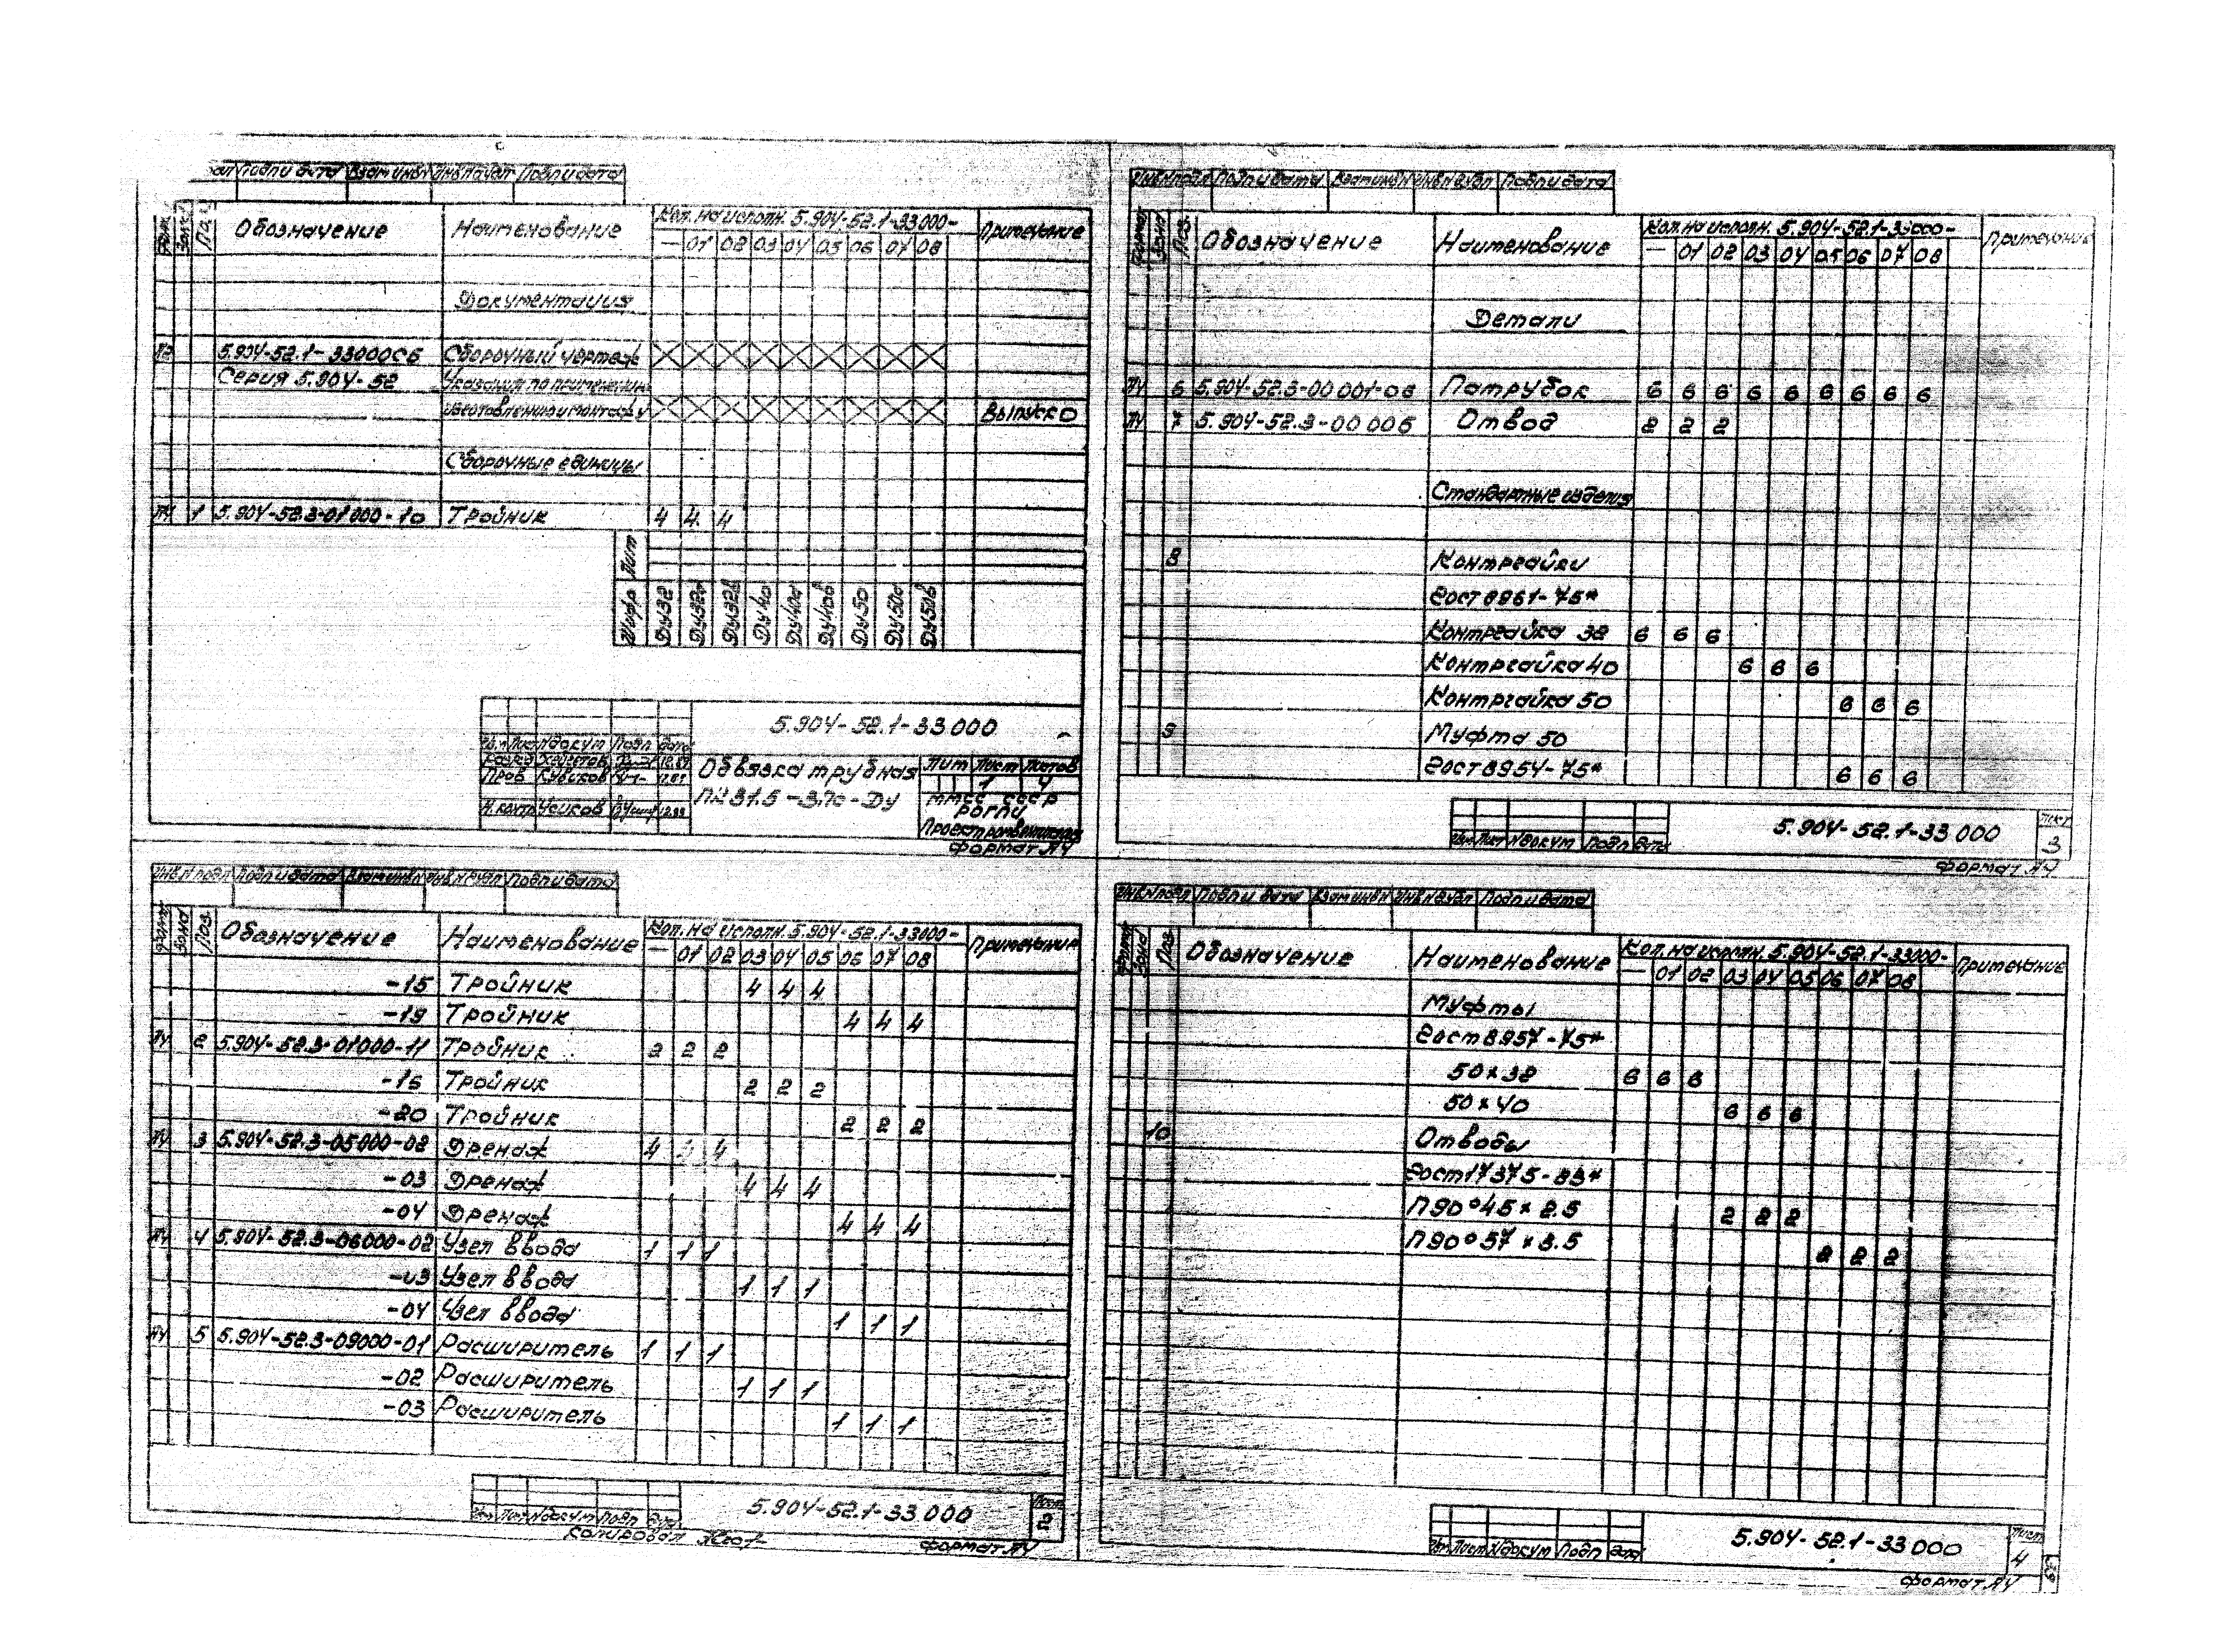 Подпи дата Взам инвN ИнвNдубл Подпи дата
Зона Поз Обозначение Наименование Кол. на исполн. 5.904-52.1-33000- Примечание
— 01 02 03 04 05 06 07 08
Документация
5.904-52.1-33000СБ Сборочный чертеж
Серия 5.904-52 Указания по применению
изготовлению и монтажу Выпуск 0
Сборочные единицы
А4 1 5.904-52.3-01000-10 Тройник 4 4 4
Лит
Шифр Ду32 Ду32а Ду32в Ду40 Ду40а Ду40в Ду50 Ду50а Ду50в
5.904-52.1-33 000
Изм Лист Nдокум Подп Дата
Обвязка трубная Лит Лист Листов
Пров 1 4
ММСС СССР
Н.контр Усиков
Формат А4
ИнвNподл Подпи дата ВзаминвN ИнвNдубл Подпи дата
Формат Зона Поз Обозначение Наименование Кол. на исполн. 5.904-52.1-33000- Примечание
— 01 02 03 04 05 06 07 08
-15 Тройник 4 4 4
-19 Тройник 4 4 4
А4 2 5.904-52.3-01000-11 Тройник 2 2 2
-16 Тройник 2 2 2
-20 Тройник 2 2 2
А4 3 5.904-52.3-05000-02 Дренаж 4 4
-03 Дренаж 4 4 4
-04 Дренаж 4 4 4
А4 4 5.904-52.3-06000-02 Узел ввода 1 1 1
-03 Узел ввода 1 1 1
-04 Узел ввода 1 1 1
А4 5 5.904-52.3-09000-01 Расширитель 1 1 1
-02 Расширитель 1 1 1
-03 Расширитель 1 1 1
5.904-52.1-33 000 Лист
Изм Лист Nдокум Подп Дата 2
Копировал Формат А4
ИнвNподл Подпи дата ВзаминвN ИнвNдубл Подпи дата
Формат Зона Поз Обозначение Наименование Кол. на исполн. 5.904-52.1-33000- Примечание
— 01 02 03 04 05 06 07 08
Детали
А4 6 5.904-52.3-00 001-08 Патрубок 6 6 6 6 6 6 6 6 6
А4 7 5.904-52.3-00 006 Отвод 2 2 2
Стандартные изделия
8 Контргайки
Гост 8961-75*
Контргайка 32 6 6 6
Контргайка 40 6 6 6
Контргайка 50 6 6 6
9 Муфта 50
Гост 8954-75* 6 6 6
5.904-52.1-33 000 Лист
Изм Лист Nдокум Подп Дата 3
Формат А4
ИнвNподл Подпи дата ВзаминвN ИнвNдубл Подпи дата
Формат Зона Поз Обозначение Наименование Кол. на исполн. 5.904-52.1-33000- Примечание
— 01 02 03 04 05 06 07 08
Муфты
Гост 8957-75*
50×32 6 6 6
50×40 6 6 6
10 Отводы
Гост 17375-83*
П90°45×2.5 2 2 2
П90°57×3.5 2 2 2
5.904-52.1-33 000 Лист
Изм Лист Nдокум Подп Дата 4
Формат А4